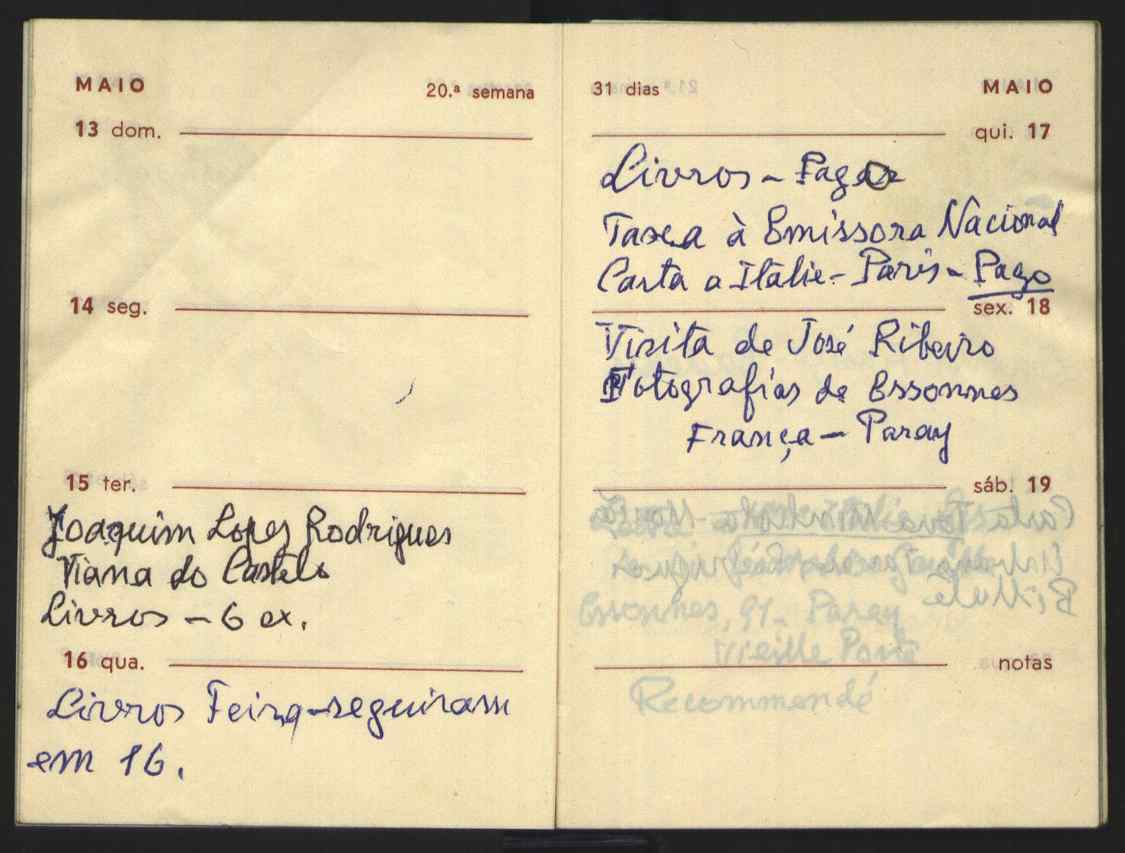 MAIO
20.ª semana
13 dom.
14 seg.
15 ter.
Joaquim Lopes Rodrigues
Viana do Castelo
Livros - 6 ex.
16 qua.
Livros Feira-seguiram
em 16.
31 dias
MAIO
qui. 17
Livros - Pagar
Taxa à Emissora Nacional
Carta a Itálie - Paris - Pago
sex. 18
Visita de José Ribeiro
Fotografias de Essonnes
França - Paray
sáb. 19
Essonnes, 91 - Paray
Vieille Poste
notas
Recommendé